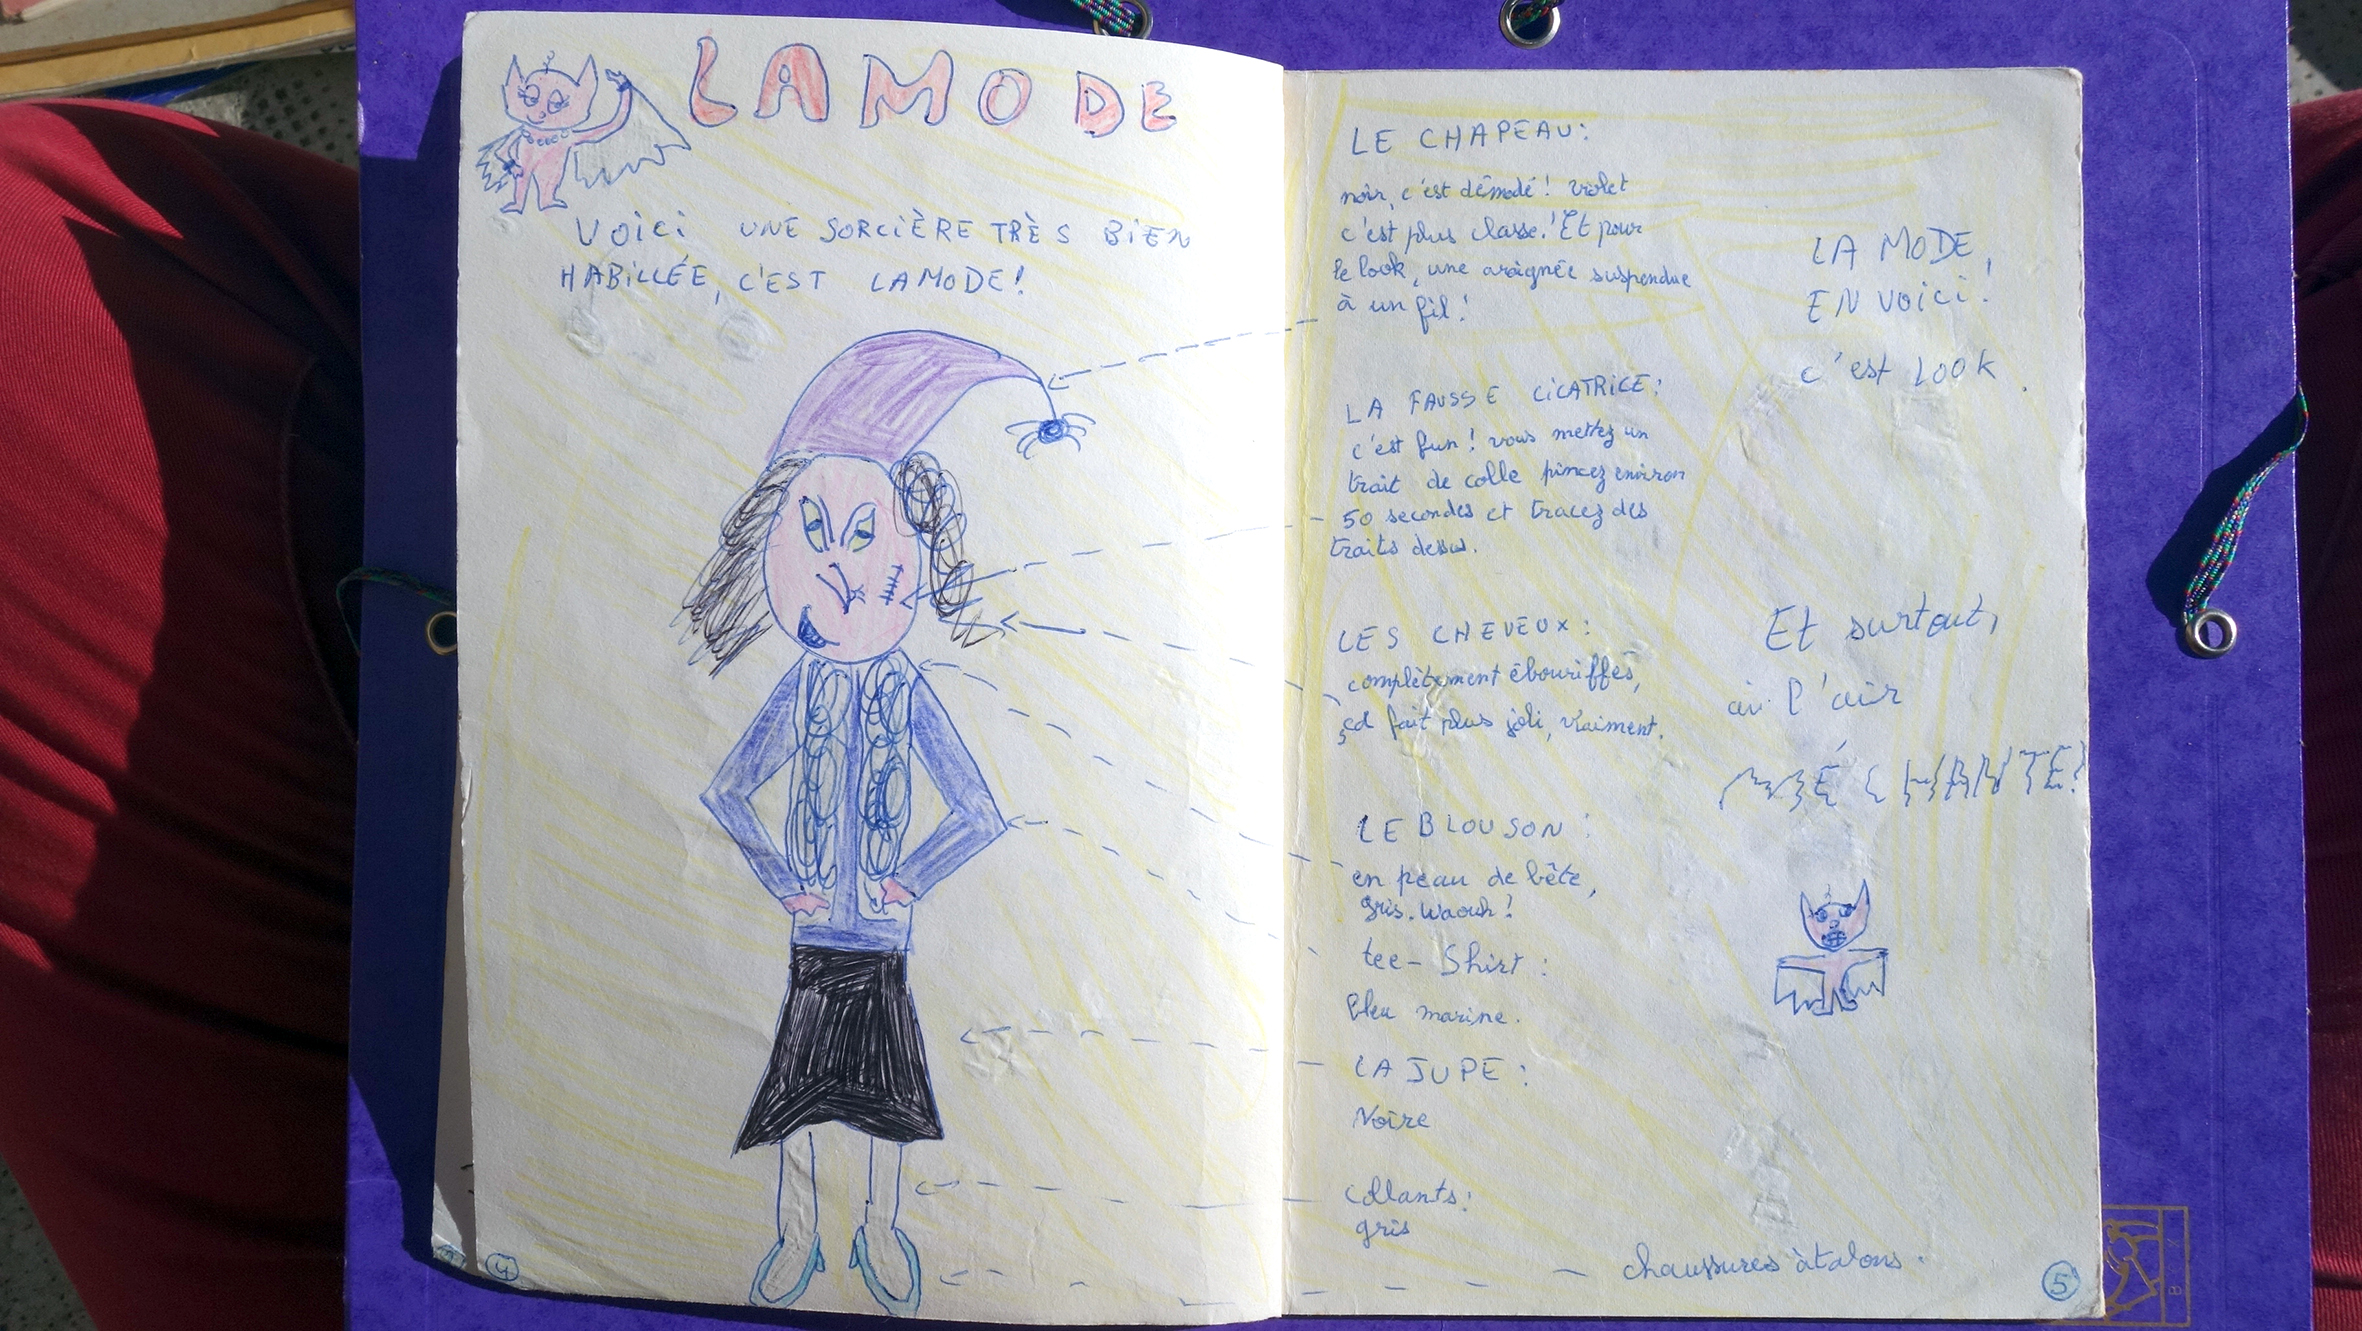 LA MODE
VOICI UNE SORCIÈRE TRÈS BIEN
HABILLÉE, C'EST LA MODE!
4
LE CHAPEAU:
noir, c'est démodé! violet
c'est plus classe! Et pour
le look, une araignée suspendue
à un fil!
LA FAUSSE CICATRICE:
c'est fun! vous mettez un
trait de colle pincez environ
50 secondes et tracez des
traits dessus.
LES CHEVEUX:
complètement ébouriffés,
ça fait plus joli, vraiment.
LE BLOUSON:
en peau de bête,
gris. Waouh!
tee-Shirt:
bleu marine.
LA JUPE:
Noire
collants:
gris
chaussures à talons.
LA MODE,
EN VOICI!
c'est LOOK.
Et surtout,
l'air
MÉCHANTE!
5